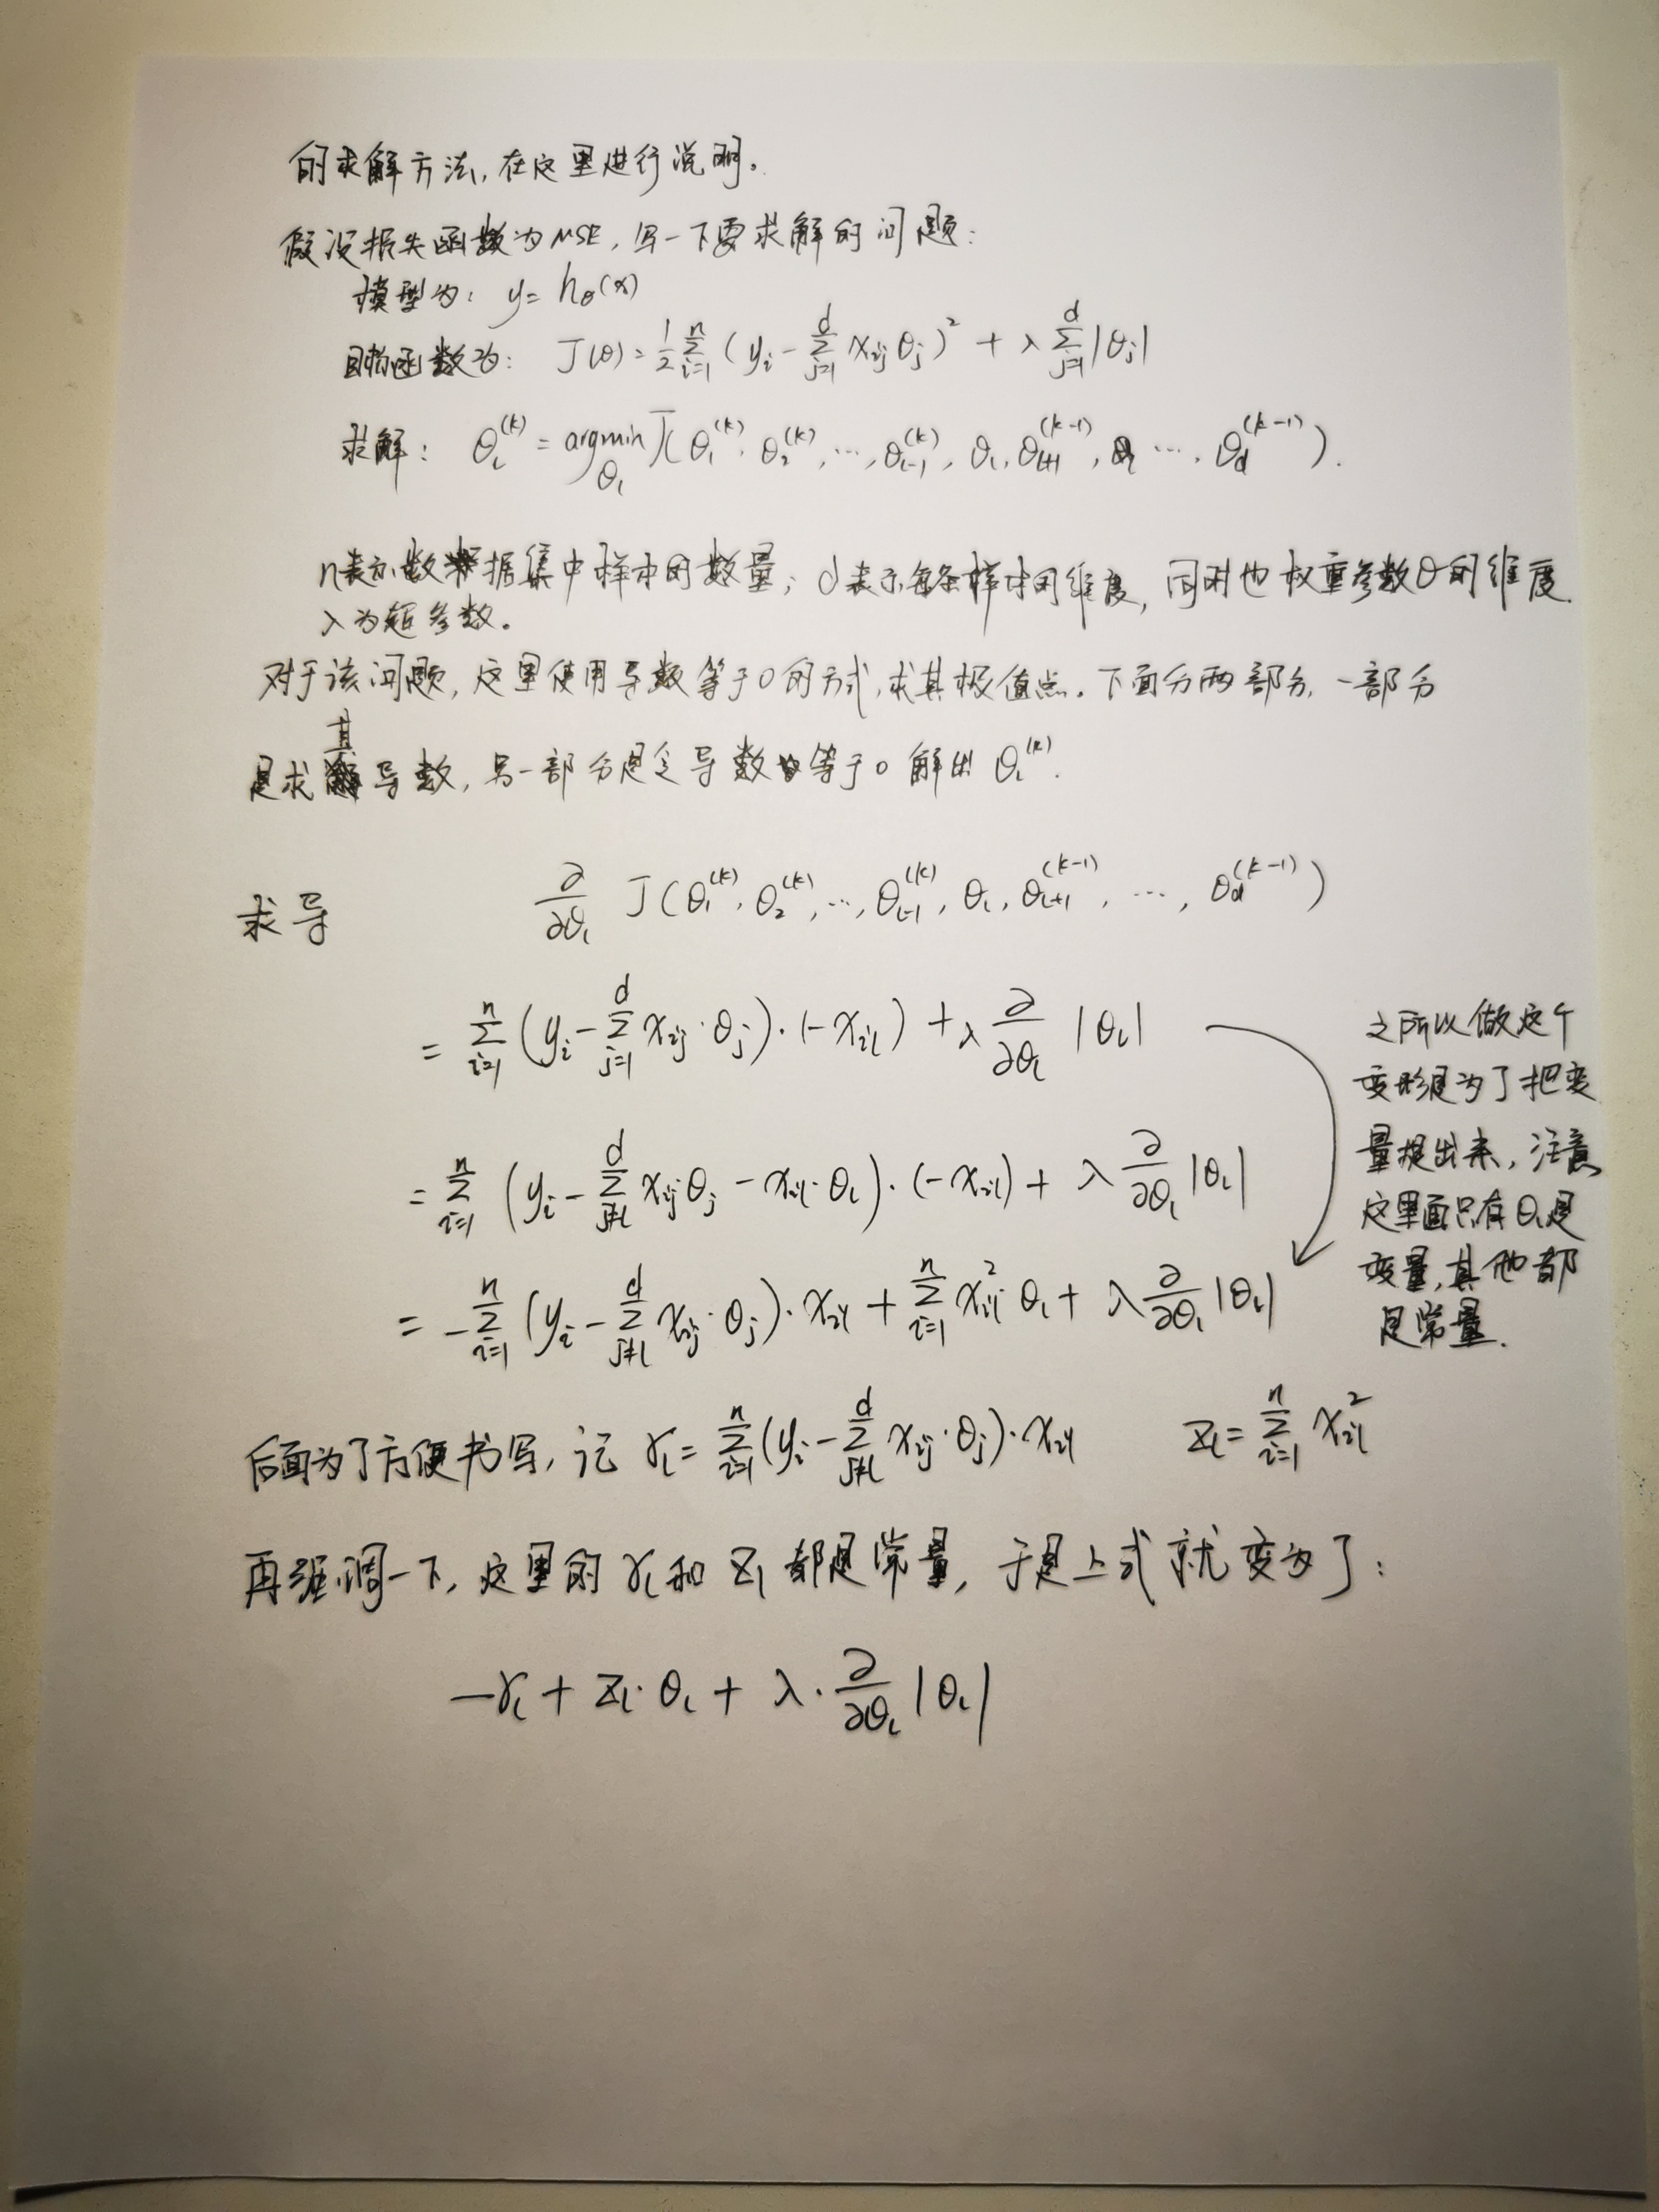 的求解方法,在这里进行说明。
假设损失函数为MSE,写一下要求解的问题:
模型为: y = h_θ(x)
目标函数为: J(θ) = 1/2 Σ_{i=1}^{n} (y_i - Σ_{j=1}^{d} x_{ij} θ_j)^2 + λ Σ_{j=1}^{d} |θ_j|
求解: θ_l^{(k)} = argmin_{θ_l} J(θ_1^{(k)}, θ_2^{(k)}, …, θ_{l-1}^{(k)}, θ_l, θ_{l+1}^{(k-1)}, …, θ_d^{(k-1)}).
n表示数据集中样本的数量; d表示每条样本的维度, 同时也权重参数θ的维度
λ为超参数。
对于该问题, 这里使用导数等于0的方式,求其极值点. 下面分两部分, 一部分
是求其导数, 另一部分是令导数等于0解出 θ_l^{(k)}.
求导 ∂/∂θ_l J(θ_1^{(k)}, θ_2^{(k)}, …, θ_{l-1}^{(k)}, θ_l, θ_{l+1}^{(k-1)}, …, θ_d^{(k-1)})
= Σ_{i=1}^{n} (y_i - Σ_{j=1}^{d} x_{ij}·θ_j)·(-x_{il}) + λ ∂/∂θ_l |θ_l|
= Σ_{i=1}^{n} (y_i - Σ_{j≠l}^{d} x_{ij}θ_j - x_{il}·θ_l)·(-x_{il}) + λ ∂/∂θ_l |θ_l|
= -Σ_{i=1}^{n} (y_i - Σ_{j≠l}^{d} x_{ij}·θ_j)·x_{il} + Σ_{i=1}^{n} x_{il}^2·θ_l + λ ∂/∂θ_l |θ_l|
之所以做这个
变形是为了把变
量提出来, 注意
这里面只有θ_l是
变量, 其他都
是常量.
后面为了方便书写, 记 r_l = Σ_{i=1}^{n} (y_i - Σ_{j≠l}^{d} x_{ij}·θ_j)·x_{il} z_l = Σ_{i=1}^{n} x_{il}^2
再强调一下, 这里的 r_l 和 z_l 都是常量, 于是上式就变为了:
-r_l + z_l·θ_l + λ·∂/∂θ_l |θ_l|